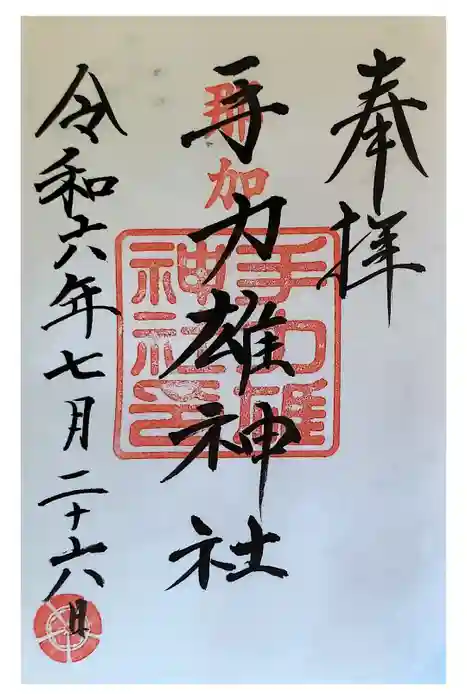 奉拝
那加
手力雄神社
手力雄
神社之
令和六年七月二十六日